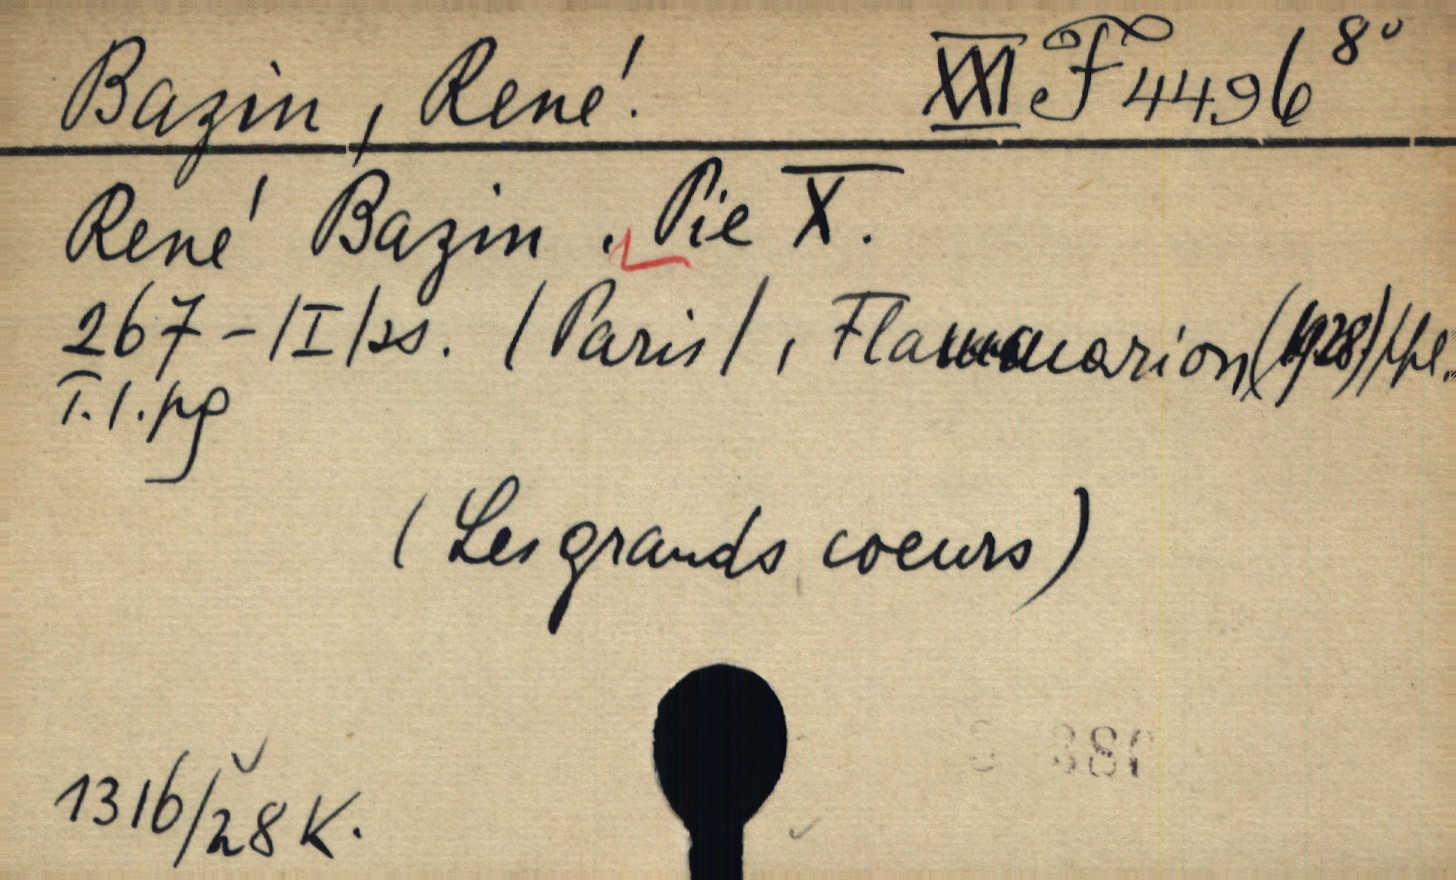 Bazin, René. XXI F 4496 8°
René Bazin. Pie X.
267-/I/ss. /Paris/, Flammarion (1928)
T.1.pg
(Les grands coeurs)
1316/28 K.